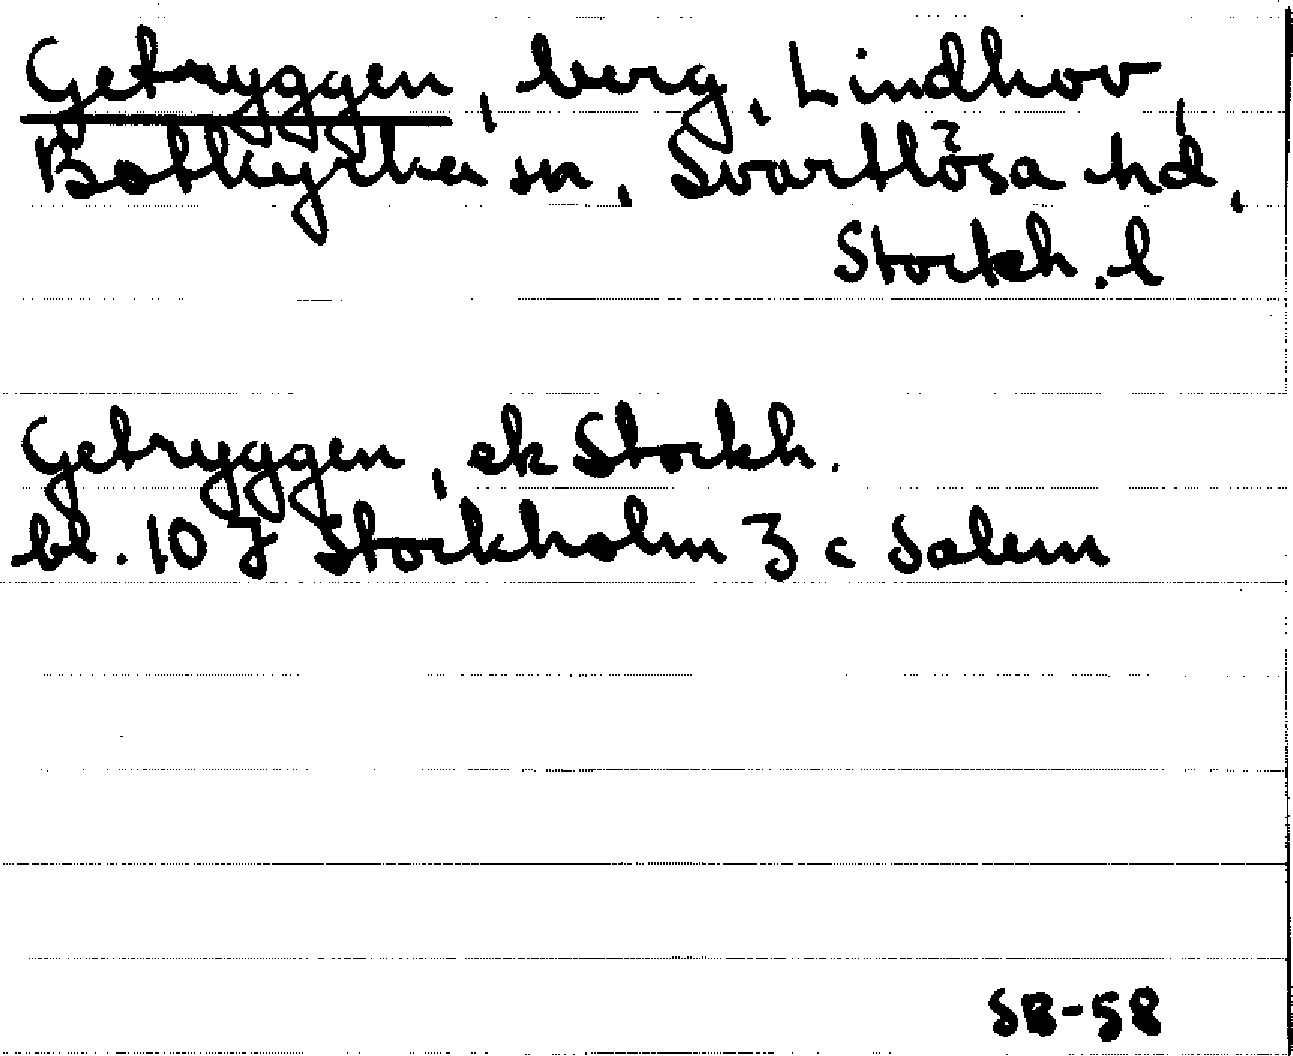 Getryggen, berg, Lindhov,
Botkyrka sn, Svartlösa hd,
Stockh. l
Getryggen, ek Stockh.
bl. 10 J Stockholm 3 c Salem
SB-58